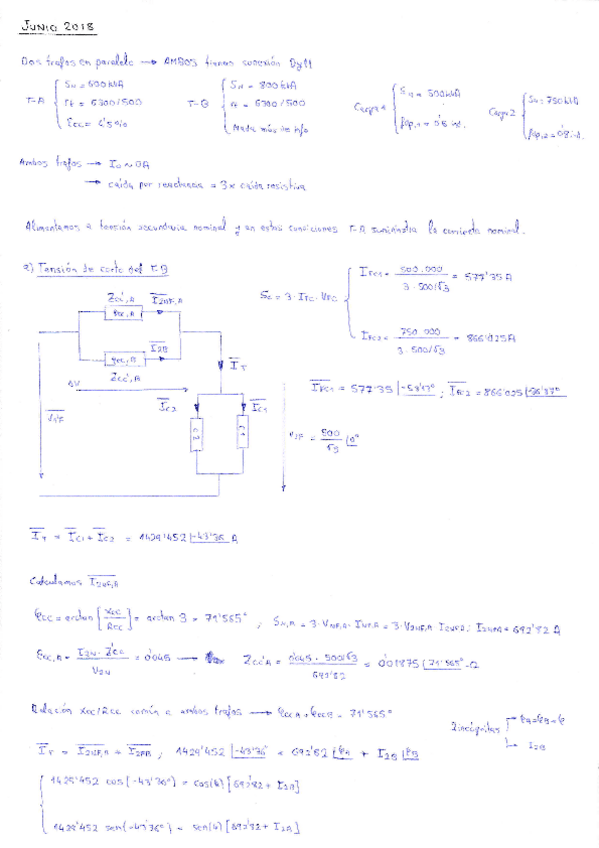 JUNIO 2018
Dos trafos en paralelo → AMBOS tienen conexión Dy11
T-A { Sn = 600 kVA
rt = 6300/500
εcc = 4'5%
T-B { Sn = 800 kVA
rt = 6300/500
Nada más de info
Carga 1 { Sn = 500 kVA
fdp,1 = 0'6 ind.
Carga 2 { Sn = 750 kVA
fdp,2 = 0'8 ind.
Ambos trafos → I0 ≈ 0A
→ caída por reactancia = 3 x caída resistiva
Alimentamos a tensión secundaria nominal y en estas condiciones T-A suministra la corriente nominal.
a) Tensión de corto del T-B
Sc = 3 · IFC · VFC { IFC1 = 500.000 / 3 · 500/√3 = 577'35 A
IFC2 = 750.000 / 3 · 500/√3 = 866'025 A
IFC1 = 577'35 |-53'13° ; IFC2 = 866'025 |-36'87°
Zcc',A I2NF,A
εcc,A
I2B
εcc,B
Zcc',B
IT
ΔV
IC2 IC1
C2 C1
V1'F
V2F = 500/√3 |0°
IT = IC1 + IC2 = 1429'452 |-43'36 A
Calculamos I2NF,A
φcc = arctan [Xcc/Rcc] = arctan 3 = 71'565° ; SN,A = 3 · VNF,A · INF,A = 3 · V2NF,A · I2NF,A ; I2NF,A = 692'82 A
εcc,A = I2N · Z'cc / V2N = 0'045 → Zcc'A = 0'045 · 500/√3 / 692'82 = 0'01875 |71'565° Ω
Relación Xcc/Rcc común a ambos trafos → φccA = φccB = 71'565°
2 incógnitas φA = φB = φ
I2B
IT = I2NF,A + I2FB ; 1429'452 |-43'36° = 692'82 |φA + I2B |φB
{ 1429'452 cos(-43'36°) = cos(φ) [692'82 + I2B]
1429'452 sen(-43'36°) = sen(φ) [692'82 + I2B]